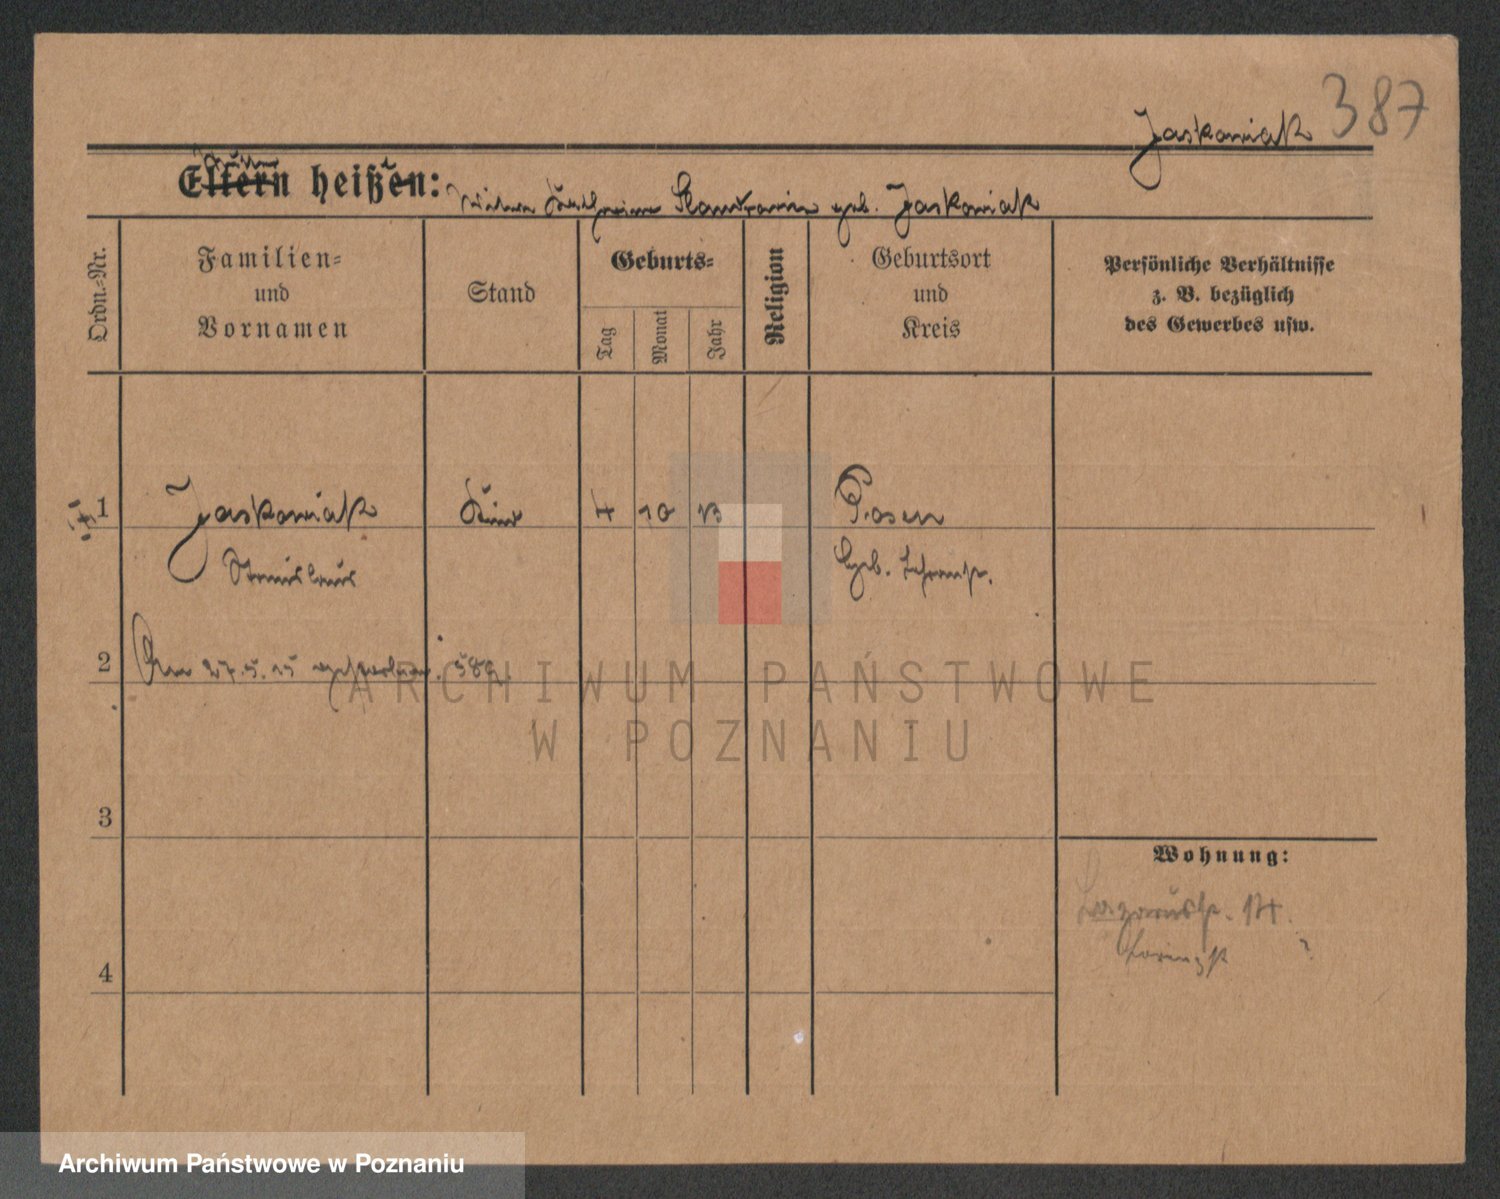 387
Jaskoniak
Eltern heißen:
geb. Jaskoniak
Ordn.-Nr.
Familien-
und
Vornamen
Stand
Geburts-
Tag
Monat
Jahr
Religion
Geburtsort
und
Kreis
Persönliche Verhältnisse
z. B. bezüglich
des Gewerbes usw.
1 Jaskoniak Kind 4 10 13 Posen
Stanislaus
2 Am 27.5.15 gestorben. 589.
3
Wohnung:
Lazarusstr. 14.
4
ARCHIWUM PAŃSTWOWE
W POZNANIU
Archiwum Państwowe w Poznaniu